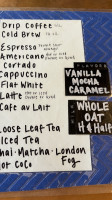 Drip Coffee
Cold Brew
Espresso
Americano
Cortado
Cappuccino
Flat White
Latte
Cafe au Lait
Loose Leaf Tea
Iced Tea
Chai · Matcha · London Fog
Hot CoCo
FLAVORS
VANILLA
MOCHA
CARAMEL
WHOLE
OAT
H & Half